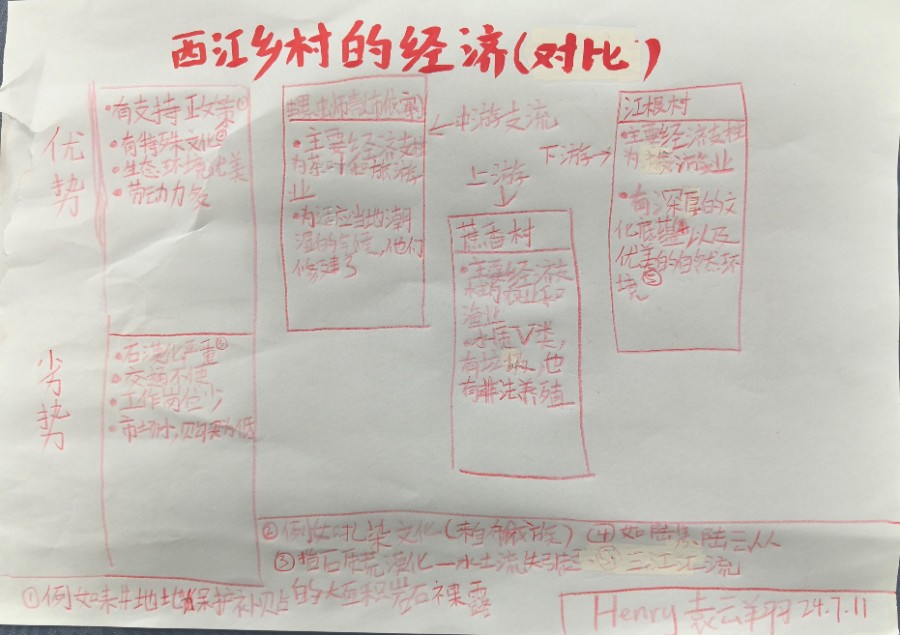 西江乡村的经济(对比)
优势
•有支持政策①
•有特殊文化②
•生态环境优美
•劳动力多
劣势
•石漠化严重③
•交通不便
•工作岗位少
•市场小,购买力低
•主要经济支柱
为茶叶和旅游
业
•为适应当地潮
湿的气候,他们
修建了
←中游支流
上游
↓
下游→
蔗香村
•主要经济支
柱为农业和
渔业
•水质V类,
有垃圾,也
有非法养殖
江根村
•主要经济支柱
为旅游业
•有深厚的文
化底蕴④以及
优美的自然环
境⑤
②例如扎染文化(来自 族) ④如陆 陆三人
③指石质荒漠化—水土流失引起 ⑤三江汇流
①例如 耕地地 保护补贴 的大面积岩石裸露
Henry 袁云翔 24.7.11